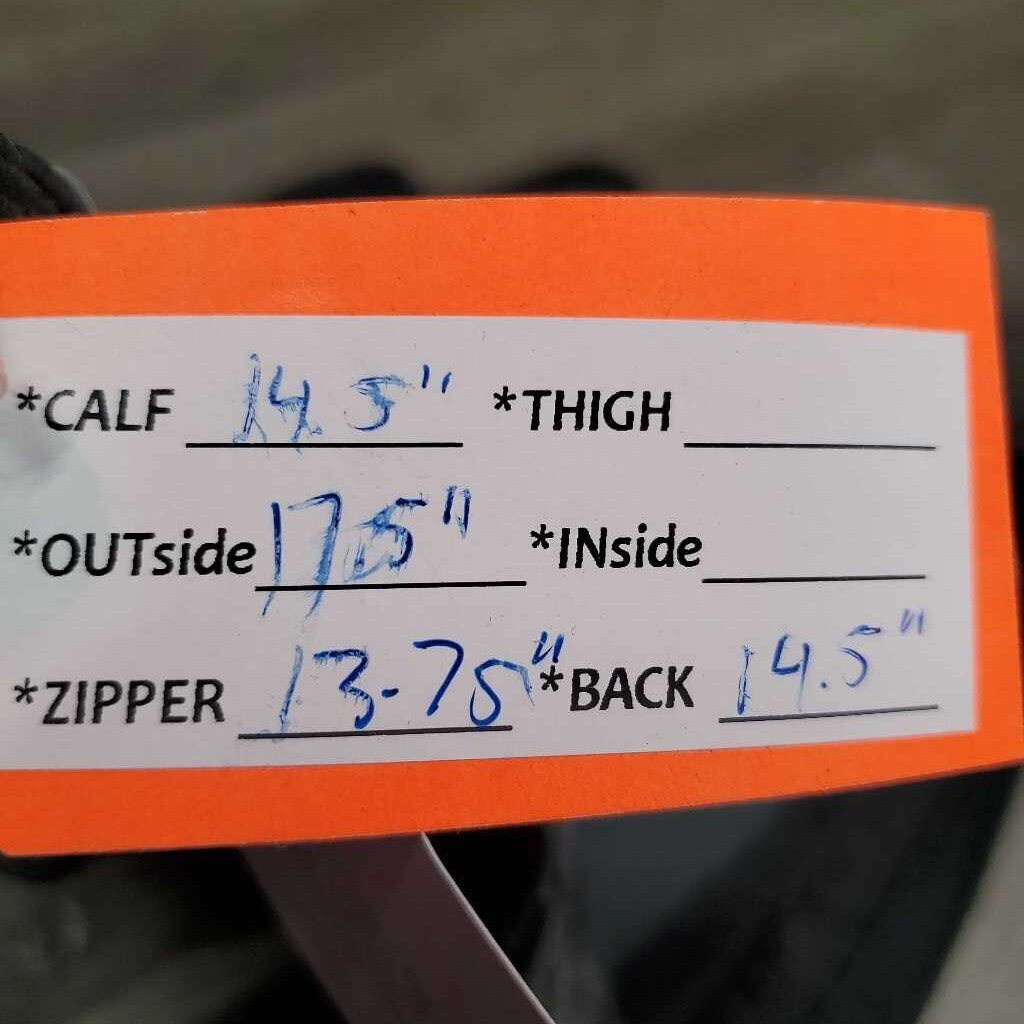 *CALF 14.5" *THIGH
*OUTside 17.5" *INside
*ZIPPER 13.75" *BACK 14.5"